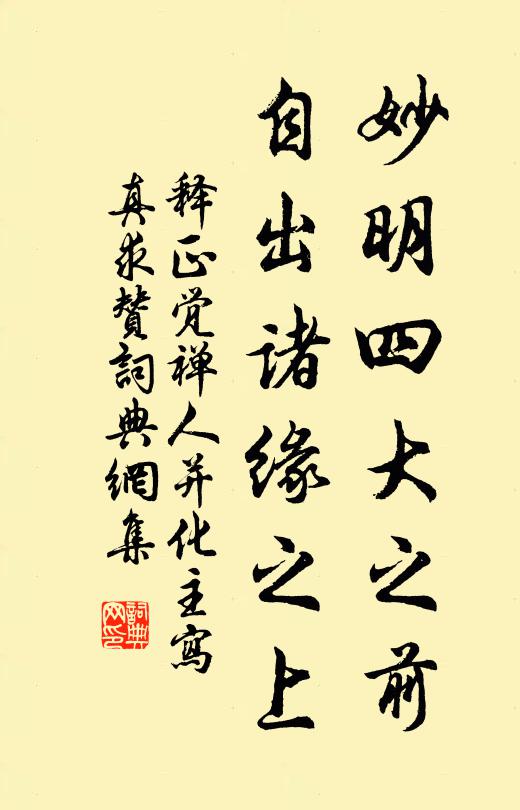 妙明四大之前
自出諸緣之上
释正觉禅人并化主寫
真求贊詞典網集
詞典網印